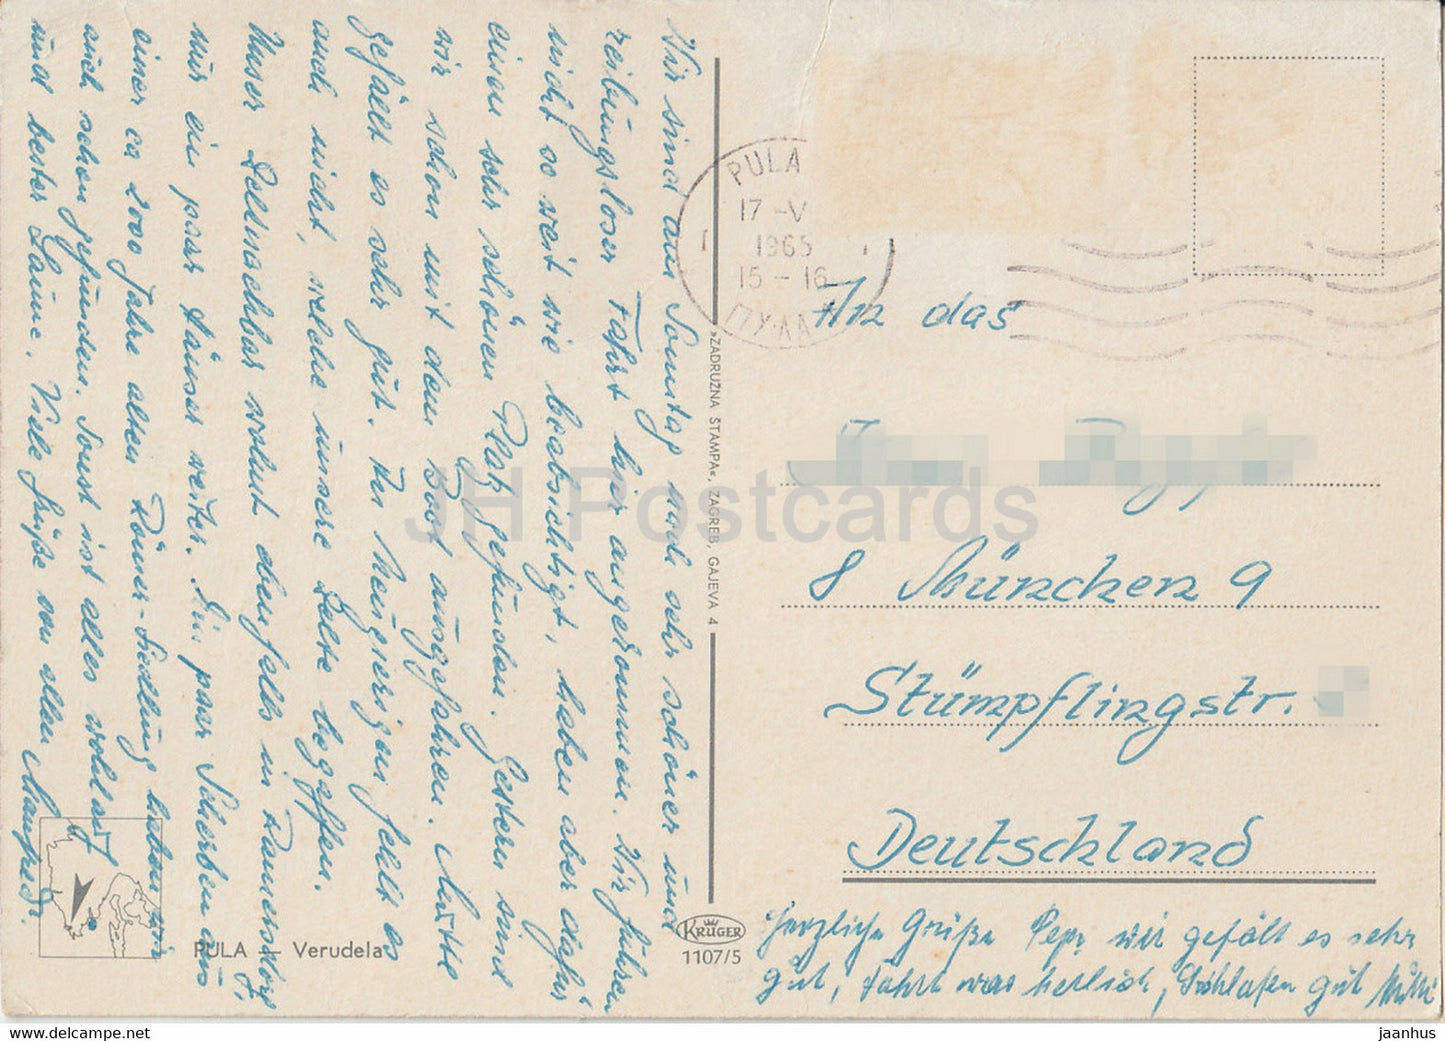 Wir sind am Sonntag nach sehr schöner und
reibungsloser Fahrt hier angekommen. Wir fuhren
nicht so weit wie beabsichtigt, haben aber dafür
einen sehr schönen Platz gefunden. Gestern sind
wir schon mit dem Boot ausgefahren. Mutti
gefällt es sehr gut. An Neugierigen fehlt es
auch nicht, welche unsere Zelte begaffen.
Unser Zeltnachbar wohnt ebenfalls in
nur ein paar Häuser weiter. Ein paar Scherben aus
einer ca 2000 Jahre alten Römer-Siedlung haben wir
auch schon gefunden. Sonst ist alles wohlauf
und bester Laune. Viele Grüße von allen Manfred.
PULA — Verudela
»ZADRUŽNA ŠTAMPA«, ZAGREB, GAJEVA 4
KRÜGER
1107/5
PULA
17 -V
1965
15 - 16
ПУЛА
An das
8 München 9
Stümpflingstr.
Deutschland
Herzliche Grüße Pepi wir gefält es sehr
gut, Fahrt was herlich, Schlafen gut Mutti
JH Postcards
www.delcampe.net
jaanhus